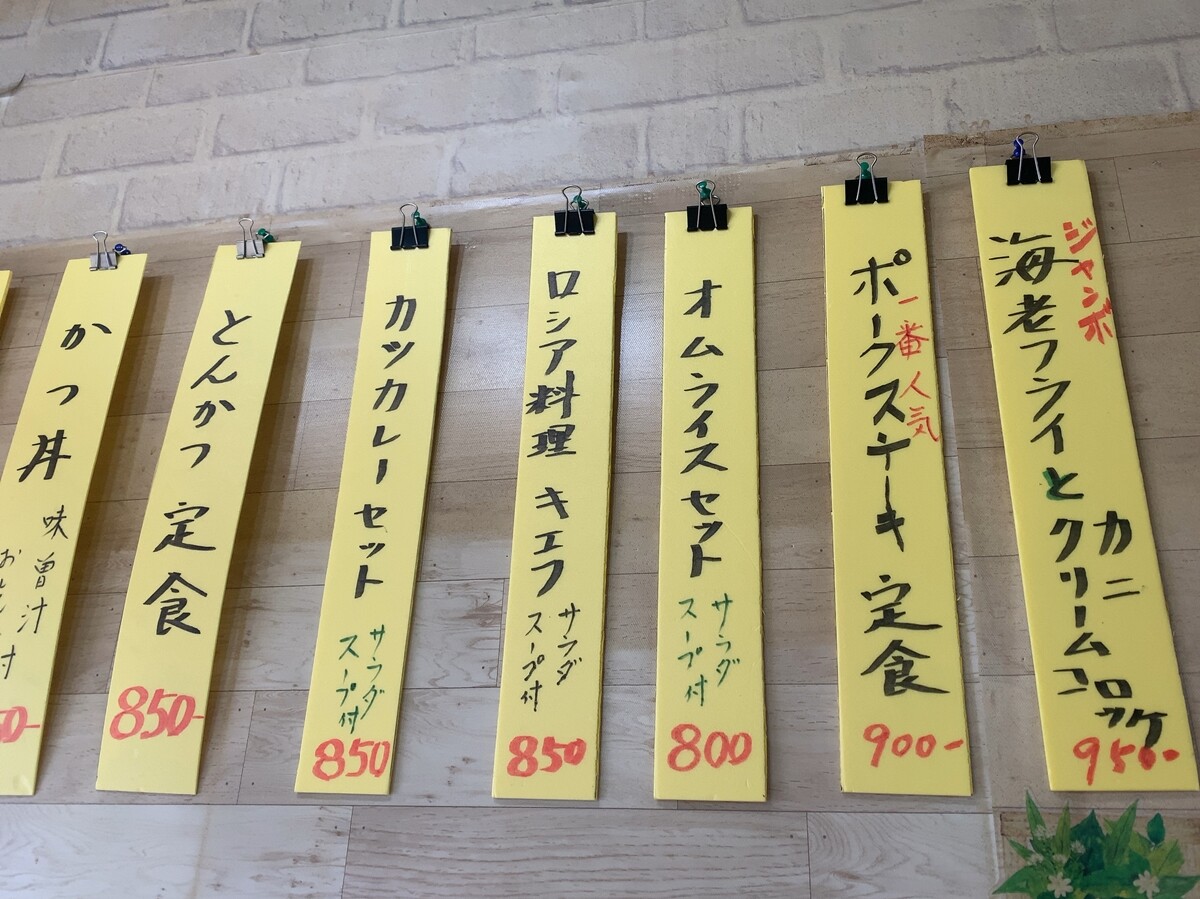 ジャンボ
海老フライと
カニ
クリームコロッケ
950-
ポークステーキ 定食
一番人気
900-
オムライスセット
サラダ
スープ付
800
ロシア料理 キエフ
サラダ
スープ付
850
カツカレーセット
サラダ
スープ付
850
とんかつ 定食
850-
かつ丼
味曽汁